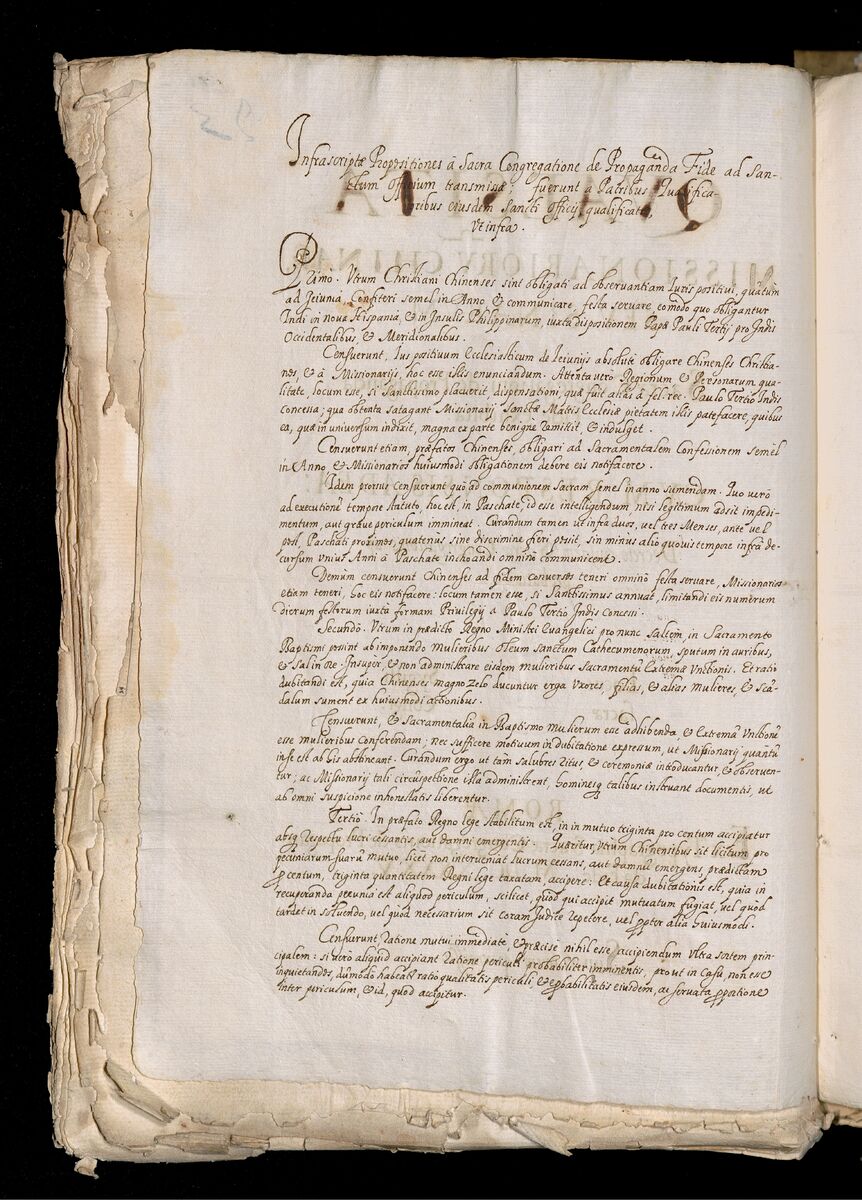 Infrascriptæ Propositiones à Sacra Congregatione de Propagãda Fide ad San-
ctum Officium transmissæ; fuerunt a Patribus Qualifica-
toribus eiusdem Sancti Officij qualificatæ,
Vt infra.
Primò. Vtrum Christiani Chinenses sint obligati ad observantiam Iuris positivi, quãtum
ad Ieiunia, Confiteri semel in Anno, & communicare, festa servare, eo modo quo obligantur
Indi in nova Hispania, & in Insulis Philippinarum, iuxta dispositionem Papæ Pauli Tertij pro Indis
Occidentalibus, & Meridionalibus.
Censuerunt, Ius positivum Ecclesiasticum de Ieiunijs absolutè obligare Chinenses Christia-
nos, & à Missionarijs, hoc esse illis enunciandum. Attenta verò Regionum, & Personarum qua-
litate, locum esse, si Sanctissimo placuerit, dispensationi, quæ fuit aliàs à fel: rec: Paulo Tertio Indis
concessa; qua obtenta satagant Missionarij Sanctæ Mãtis Ecclesiæ pietatem illis patefacere, quibus
ea, quæ in universum indixit, magna ex parte benignè remittit, & indulget.
Censuerunt etiam, præfatos Chinenses, obligari ad Sacramentalem Confessionem semel
in Anno, & Missionarios huiusmodi obligationem debere eis notifacere.
Idem prorsus censuerunt quò ad communionem Sacram semel in anno sumendam. Quo verò
ad executionẽ tempore statuto, hoc est, in Paschate, id esse intelligendum, nisi legitimum adsit impedi-
mentum, aut grave periculum immineat. Curandum tamen ut infra duos, vel tres Menses, ante vel
post Paschati proximos, quatenus sine discrimine fieri possit, sin minus alio quovis tempore infrà de-
cursum unius Anni à Paschate inchoandi omninò communicent.
Demum censuerunt Chinenses ad fidem conversos teneri omninò festa servare, Missionarios
etiam teneri, hoc eis notifacere: locum tamen esse, si Sanctissimus annuat, limitandi eis numerum
dierum festorum iuxtà formam Privilegij a Paulo Tertio Indis concessi.
Secundò. Vtrum in prædicto Regno Ministri Euangelici pro nunc saltem, in Sacramento
Baptismi possint ab imponendo Mulieribus Oleum Sanctum Cathecumenorum, sputum in auribus,
& sal in ore. Insuper, & non administrare eisdem mulieribus Sacramentũ Extremæ Vnctionis. Et ratio
dubitandi est, quia Chinenses magno zelo ducuntur erga Vxores, filias, & alias Mulieres, & scã-
dalum sument ex huiusmodi actionibus.
Censuerunt, & Sacramentalia in Baptismo mulierum esse adhibenda, & Extremã Vnctionẽ
esse mulieribus conferendam; nec sufficere motivum in dubitatione expressum, ut Missionarij quantũ
in se est ab his abstineant. Curandum ergo ut tàm salubres ritus, & ceremoniæ introducantur, & observen-
tur; ac Missionarij tali circũspectione illa administrent, hominesq talibus instruant documentis, ut
ab omni suspicione inhonestatis liberentur.
Tertiò. In præfato Regno lege stabilitum est, in in mutuo triginta pro centum accipiatur
absq respectu lucri cessantis, aut damni emergentis. Quæritur, Vtrum Chinensibus sit licitum pro
pecuniarum suarũ mutuo, licet non interveniat lucrum cessans, aut damnũ emergens, prædictam
p centum, triginta quantitatem Regni lege taxatam, accipere: Et causa dubitationis est, quia in
recuperanda pecunia est aliquod periculum, scilicet, quòd qui accipit mutuatum fugiat, vel quòd
tardet in solvendo, vel quòd necessarium sit coram Iudice repetere, vel ppter alia huiusmodi.
Censuerunt, ratione mutui immediatè, & præcisè nihil esse accipiendum ultra sortem prin-
cipalem: si verò aliquid accipiant ratione periculi probabiliter imminentis, prout in casu, non esse
inquietandos, dũmodo habeatur ratio qualitatis periculi, & pbabilitatis eiusdem, ac servata pportione
inter periculum, & id, quod accipitur.